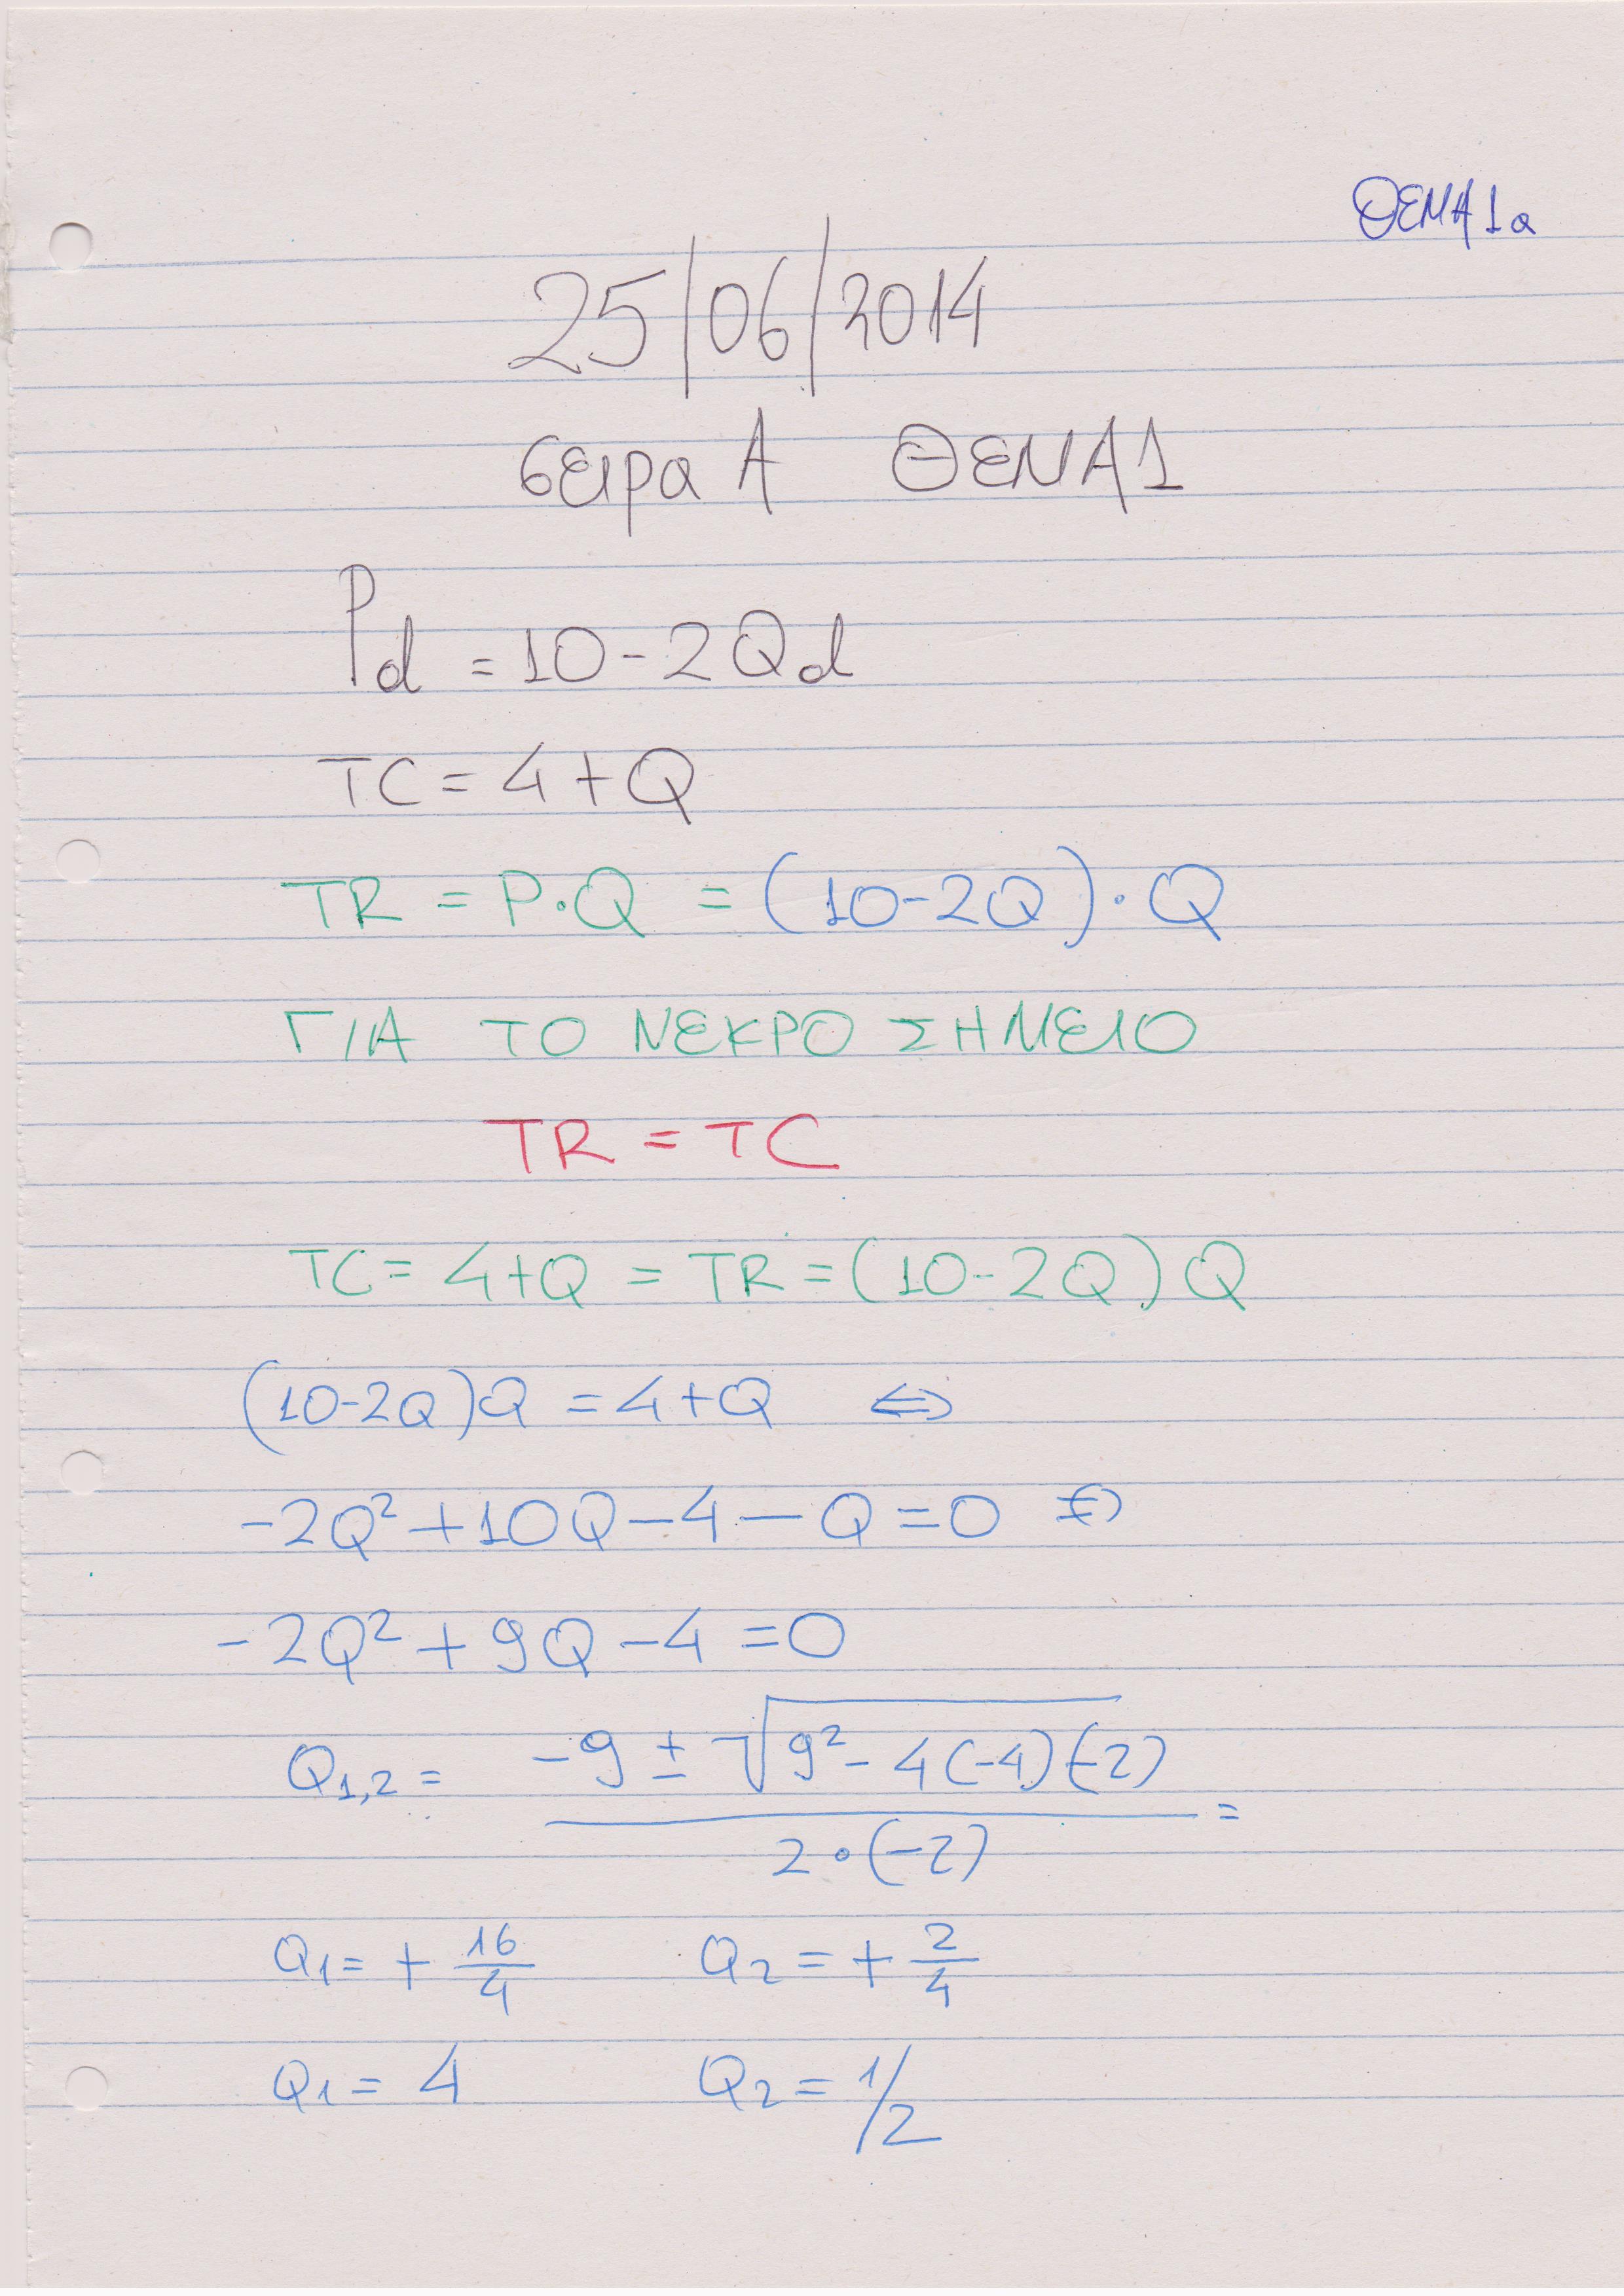 ΘΕΜΑ 1α
25/06/2014
σειρα Α ΘΕΜΑ 1
Pd = 10 - 2Qd
TC = 4 + Q
TR = P·Q = (10-2Q)·Q
ΓΙΑ ΤΟ ΝΕΚΡΟ ΣΗΜΕΙΟ
TR = TC
TC = 4+Q = TR = (10-2Q)Q
(10-2Q)Q = 4+Q ⇔
-2Q² + 10Q - 4 - Q = 0 ⇔
-2Q² + 9Q - 4 = 0
Q1,2 = (-9 ± √(9² - 4(-4)(-2))) / (2·(-2)) =
Q1 = + 16/4 Q2 = + 2/4
Q1 = 4 Q2 = 1/2